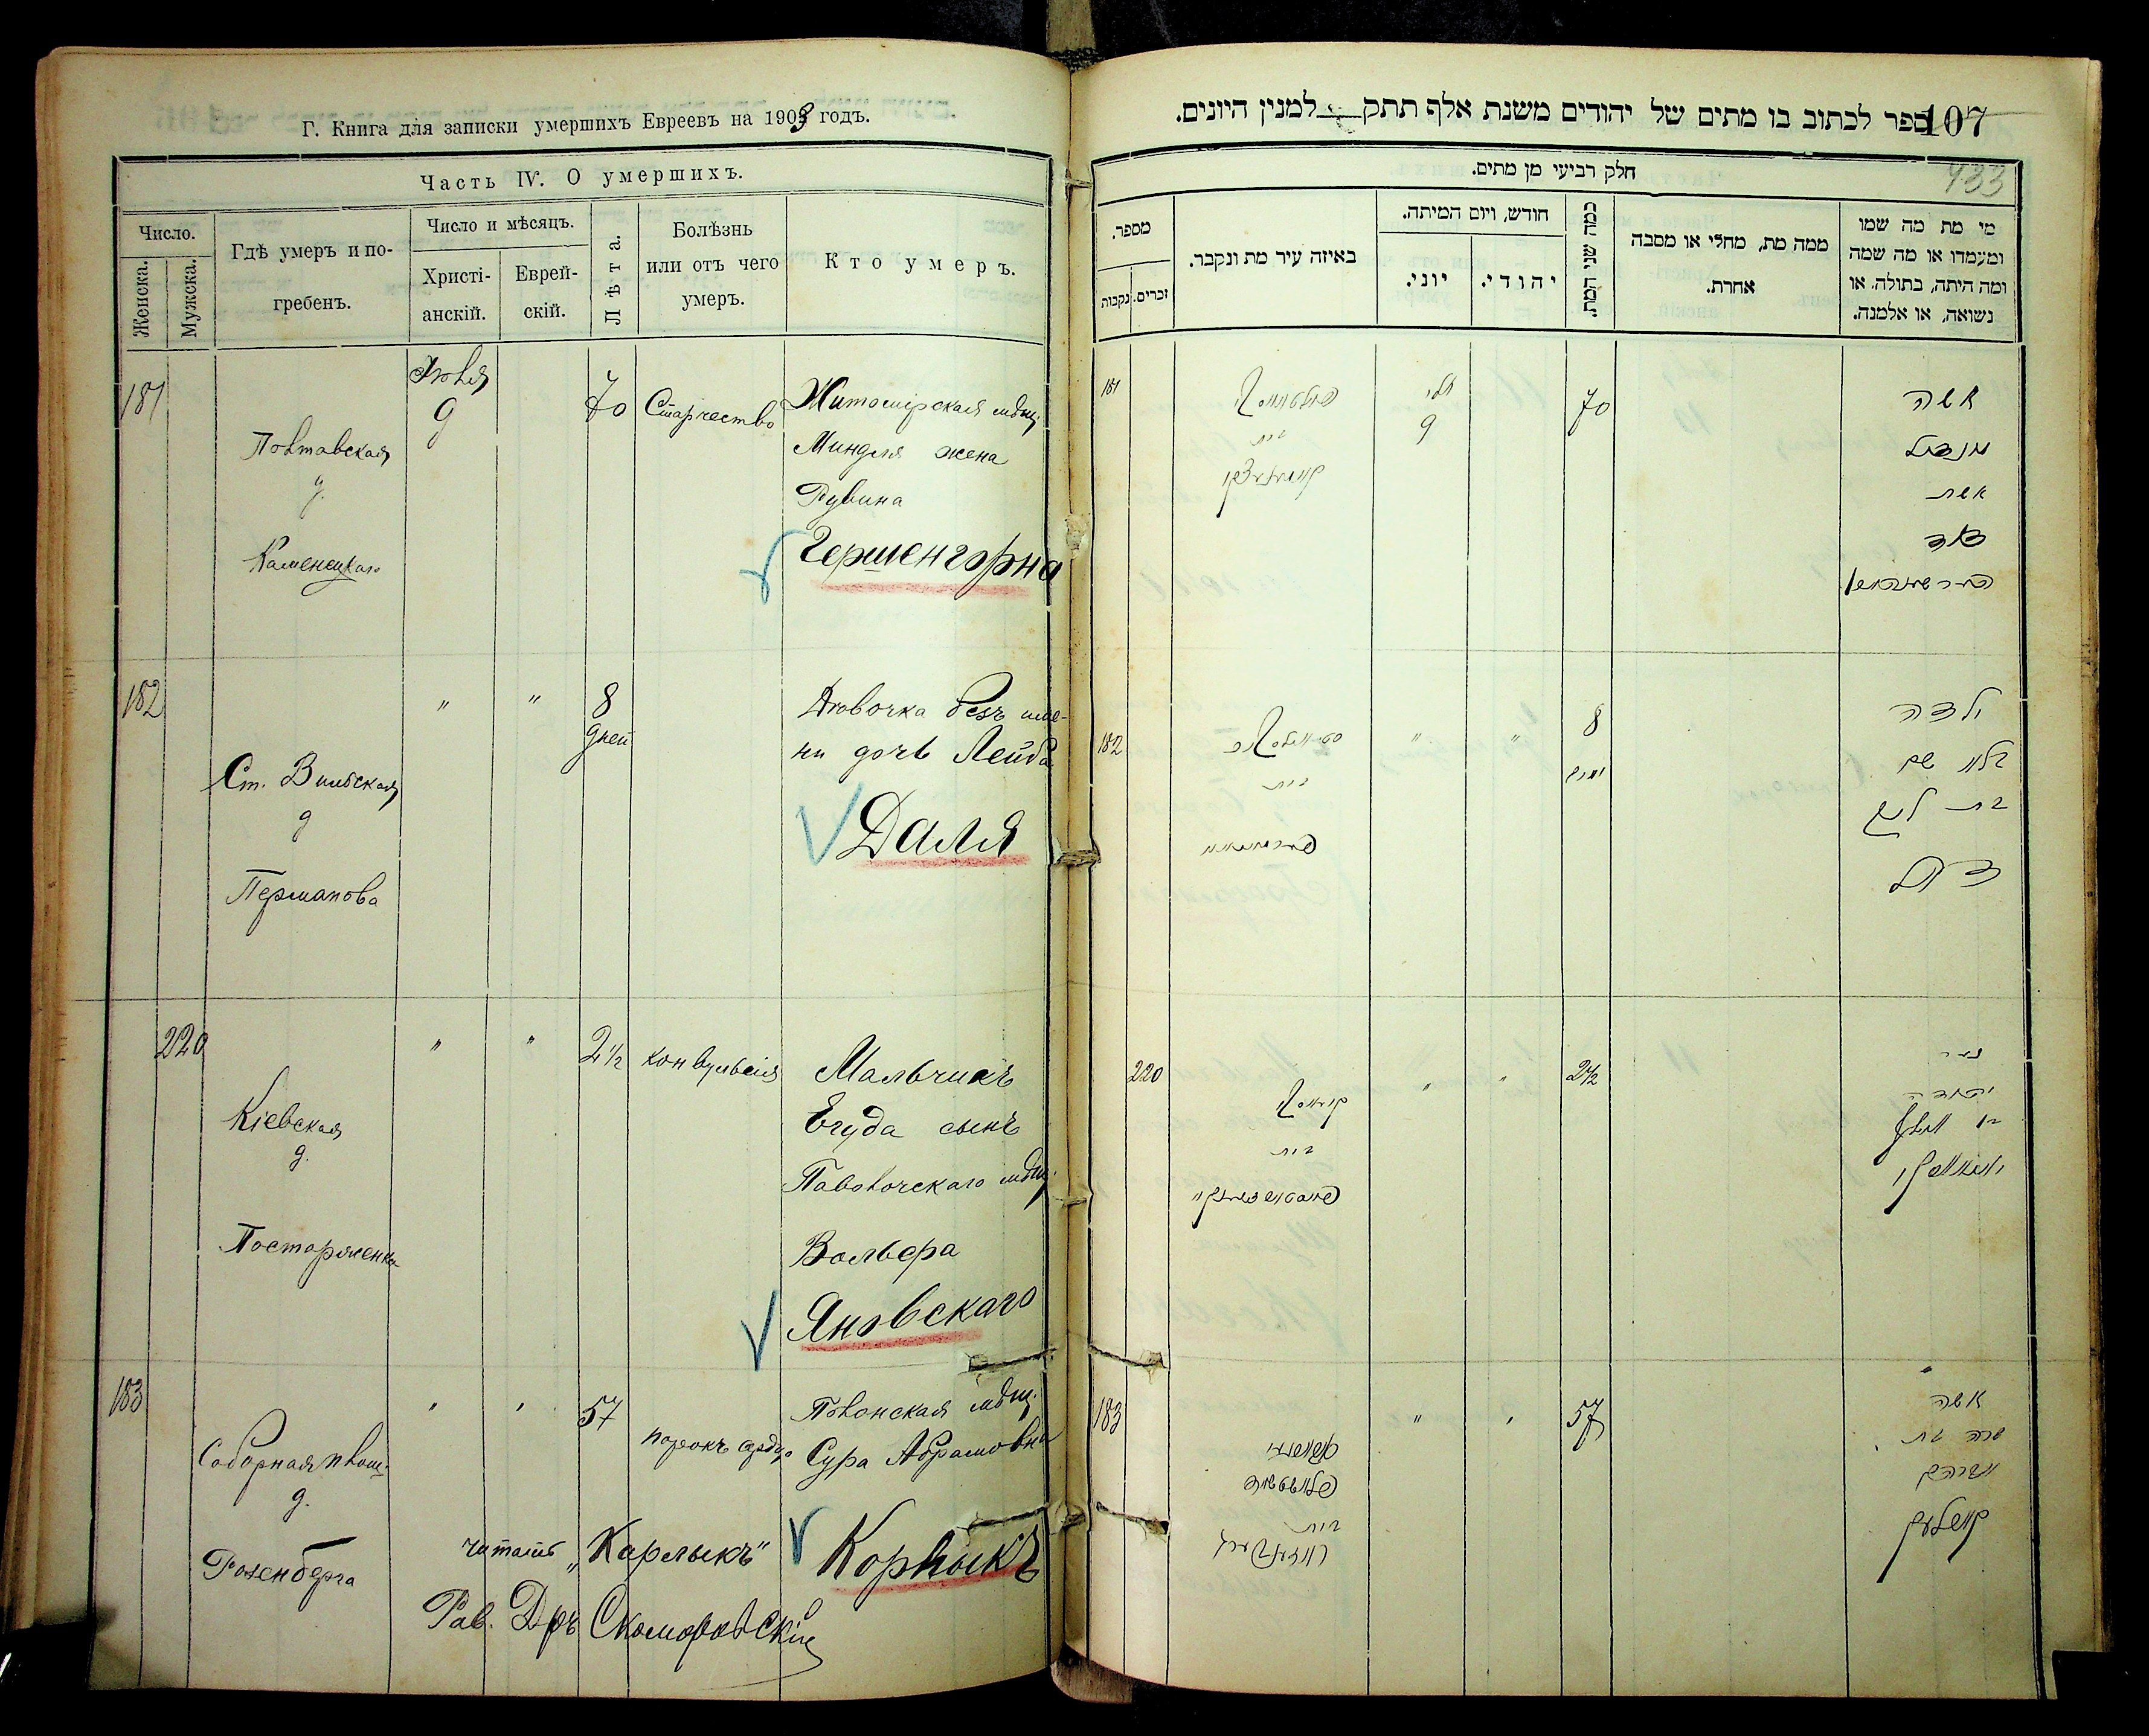 Г. Книга для записки умершихъ Евреевъ на 1903 годъ.
Часть IV. О умершихъ.
Число.
Женска.
Мужска.
Гдѣ умеръ и по-
гребенъ.
Число и мѣсяцъ.
Христі-
анскій.
Еврей-
скій.
Лѣта.
Болѣзнь
или отъ чего
умеръ.
Кто умеръ.
181
Полтавская
д.
Каменецкаго
Іюля
9
70
Старчество
Житомірская мѣщ
Миндля жена
Рувина
Гершенгорна
182
Ст. Вильская
д
" "
8
дней
Дѣвочка безъ име-
ни дочь Лейба
Даля
220
Кіевская
д.
" "
2 1/2
конвульсія
Мальчикъ
Егуда сынъ
Паволочскаго мѣщ.
Вольфа
Яновскаго
183
Соборная площ.
д.
Розенберга
" "
57
порокъ сердца
мѣщ.
Сура Абрамовна
Корлыкъ
читать „Карлыкъ"
Рав. Дръ Скоморовскій
107
ספר לכתוב בו מתים של יהודים משנת אלף תתק למנין היונים.
433
חלק רביעי מן מתים.
מספר.
נקבות
זכרים.
באיזה עיר מת ונקבר.
חודש, ויום המיתה.
יוני.
יהודי.
כמה שני המת.
ממה מת, מחלי או מסבה
אחרת.
מי מת מה שמו
ומעמדו או מה שמה
ומה היתה, בתולה או
נשואה, או אלמנה.
181
בית
יולי
9
70
אשה
מנדיל
אשת
182
בית
" "
8
ימים
ילדה
בלא שם
בת לייב
דאל
220
בית
" "
2 1/2
נער
יהודה
בן וואלף
יאנאווסקי
183
בית
ראזענבערג
" "
57
אשה
שרה בת
אברהם